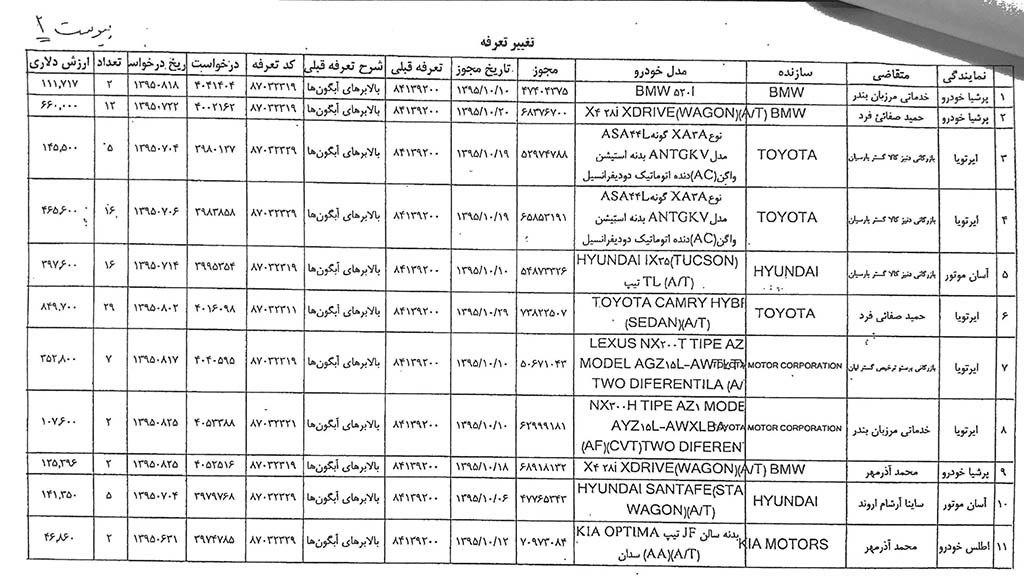 پیوست ۲
تغییر تعرفه
نمایندگی متقاضی سازنده مدل خودرو مجوز تاریخ مجوز تعرفه قبلی شرح تعرفه قبلی کد تعرفه درخواست ریخ درخواس تعداد ارزش دلاری
۱ پرشیا خودرو خدماتی مرزبان بندر BMW BMW ۵۲۰I ۴۷۲۰۴۳۷۵ ۱۳۹۵/۱۰/۱۰ ۸۴۱۳۹۲۰۰ بالابرهای آبگون‌ها ۸۷۰۳۲۳۱۹ ۴۰۴۱۴۰۴ ۱۳۹۵۰۸۱۸ ۲ ۱۱۱,۷۱۷
۲ پرشیا خودرو حمید صفائی فرد BMW X۴ ۲۸i XDRIVE(WAGON)(A/T) ۶۸۳۷۶۷۰۰ ۱۳۹۵/۱۰/۲۰ ۸۴۱۳۹۲۰۰ بالابرهای آبگون‌ها ۸۷۰۳۲۳۱۹ ۴۰۰۲۱۶۲ ۱۳۹۵۰۷۲۲ ۱۲ ۶۶۰,۰۰۰
۳ ایرتویا بازرگانی دنیز کالا گستر پارسیان TOYOTA نوع XA۳A گونه ASA۴۴L
مدل ANTGKV بدنه استیشن
واگن(AC)دنده اتوماتیک دودیفرانسیل ۵۲۹۷۴۷۸۸ ۱۳۹۵/۱۰/۱۹ ۸۴۱۳۹۲۰۰ بالابرهای آبگون‌ها ۸۷۰۳۲۳۲۹ ۳۹۸۰۱۳۷ ۱۳۹۵۰۷۰۴ ۵ ۱۴۵,۵۰۰
۴ ایرتویا بازرگانی دنیز کالا گستر پارسیان TOYOTA نوع XA۳A گونه ASA۴۴L
مدل ANTGKV بدنه استیشن
واگن(AC)دنده اتوماتیک دودیفرانسیل ۶۵۸۵۳۱۹۱ ۱۳۹۵/۱۰/۱۹ ۸۴۱۳۹۲۰۰ بالابرهای آبگون‌ها ۸۷۰۳۲۳۲۹ ۳۹۸۳۸۵۸ ۱۳۹۵۰۷۰۶ ۱۶ ۴۶۵,۶۰۰
۵ آسان موتور بازرگانی دنیز کالا گستر پارسیان HYUNDAI HYUNDAI IX۳۵(TUCSON)
TL (A/T) تیپ ۵۴۸۷۳۳۲۶ ۱۳۹۵/۱۰/۱۰ ۸۴۱۳۹۲۰۰ بالابرهای آبگون‌ها ۸۷۰۳۲۳۱۹ ۳۹۹۵۳۵۴ ۱۳۹۵۰۷۱۴ ۱۶ ۳۹۷,۶۰۰
۶ ایرتویا حمید صفائی فرد TOYOTA TOYOTA CAMRY HYBF
(SEDAN)(A/T) ۷۳۸۲۲۵۰۷ ۱۳۹۵/۱۰/۲۹ ۸۴۱۳۹۲۰۰ بالابرهای آبگون‌ها ۸۷۰۳۲۳۱۱ ۴۰۱۶۰۹۸ ۱۳۹۵۰۸۰۲ ۲۹ ۸۴۹,۷۰۰
۷ ایرتویا بازرگانی پرستو ترخیص گستر لیان MOTOR CORPORATION LEXUS NX۲۰۰T TIPE AZ
MODEL AGZ۱۵L-AW
TWO DIFERENTILA (A/ ۵۰۶۷۱۰۴۳ ۱۳۹۵/۱۰/۱۰ ۸۴۱۳۹۲۰۰ بالابرهای آبگون‌ها ۸۷۰۳۲۳۱۹ ۴۰۴۰۵۹۵ ۱۳۹۵۰۸۱۷ ۷ ۳۵۲,۸۰۰
۸ ایرتویا خدماتی مرزبان بندر MOTOR CORPORATION NX۳۰۰H TIPE AZ۱ MODE
AYZ۱۵L-AWXLB
(AF)(CVT)TWO DIFEREN ۶۲۹۹۹۱۸۱ ۱۳۹۵/۱۰/۱۰ ۸۴۱۳۹۲۰۰ بالابرهای آبگون‌ها ۸۷۰۳۲۳۲۱ ۴۰۵۳۳۸۸ ۱۳۹۵۰۸۲۵ ۲ ۱۰۷,۶۰۰
۹ پرشیا خودرو محمد آذرمهر BMW X۴ ۲۸i XDRIVE(WAGON)(A/T) ۶۸۹۱۸۱۳۲ ۱۳۹۵/۱۰/۱۸ ۸۴۱۳۹۲۰۰ بالابرهای آبگون‌ها ۸۷۰۳۲۳۱۹ ۴۰۵۲۵۱۶ ۱۳۹۵۰۸۲۵ ۲ ۱۲۵,۲۹۶
۱۰ آسان موتور ساینا آرشام اروند HYUNDAI HYUNDAI SANTAFE(STA
WAGON)(A/T) ۴۷۷۶۵۳۴۳ ۱۳۹۵/۱۰/۰۶ ۸۴۱۳۹۲۰۰ بالابرهای آبگون‌ها ۸۷۰۳۲۳۲۹ ۳۹۷۹۷۶۸ ۱۳۹۵۰۷۰۴ ۵ ۱۴۱,۳۵۰
۱۱ اطلس خودرو محمد آذرمهر KIA MOTORS بدنه سالن JF تیپ KIA OPTIMA
(AA)(A/T) سدان ۷۰۹۷۳۰۸۴ ۱۳۹۵/۱۰/۱۲ ۸۴۱۳۹۲۰۰ بالابرهای آبگون‌ها ۸۷۰۳۲۳۱۹ ۳۹۷۴۷۸۵ ۱۳۹۵۰۶۳۱ ۲ ۴۶,۸۶۰